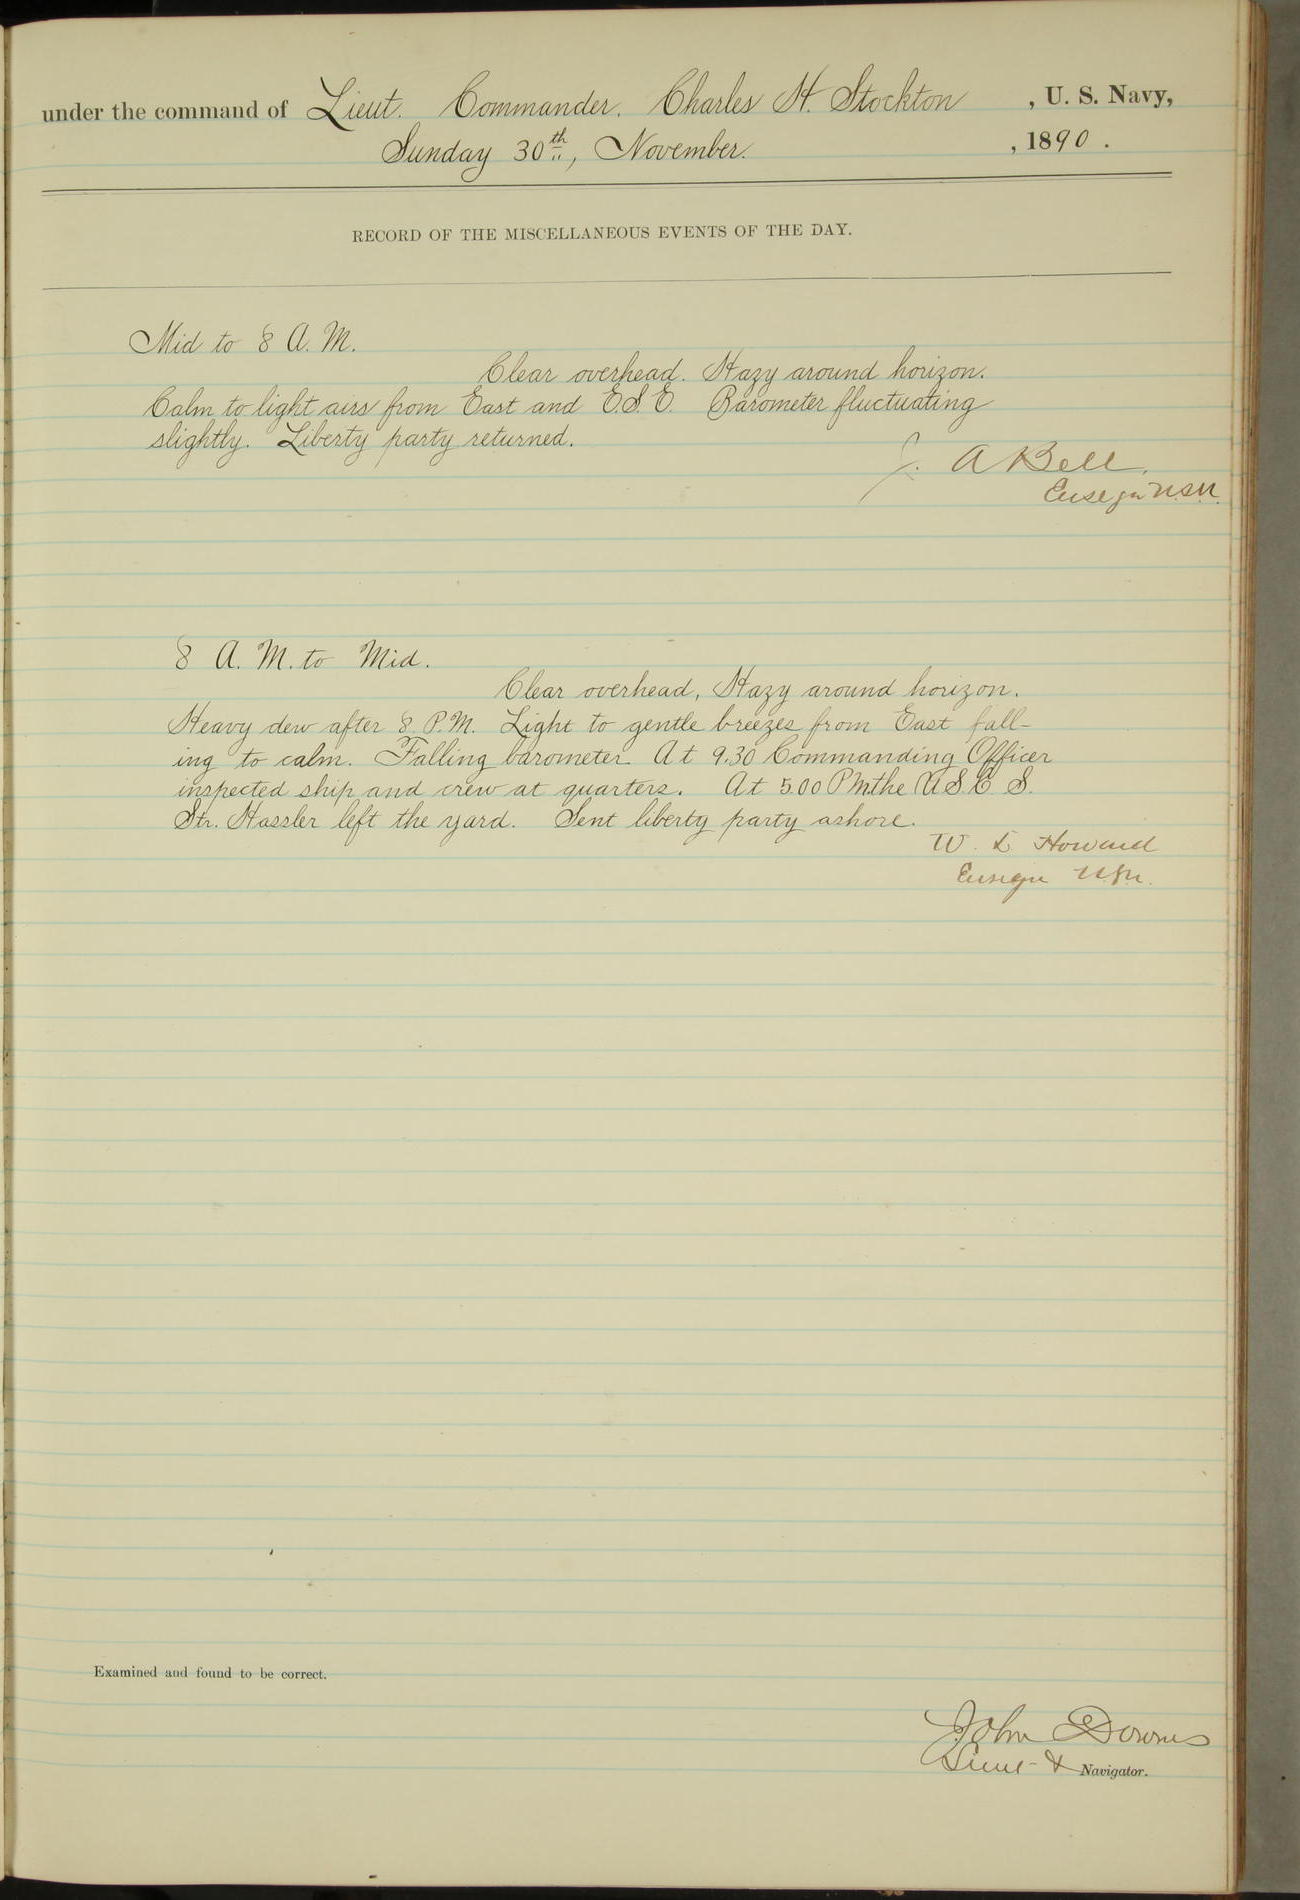 under the command of Lieut. Commander. Charles H. Stockton , U. S. Navy,
Sunday 30th, November. , 1890 .
RECORD OF THE MISCELLANEOUS EVENTS OF THE DAY.
Mid to 8 A. M.
Clear overhead. Hazy around horizon.
Calm to light airs from East and E.S.E. Barometer fluctuating
slightly. Liberty party returned.
J. A Bell.
Ensign U.S.N.
8 A. M. to Mid.
Clear overhead, Hazy around horizon.
Heavy dew after 8 P.M. Light to gentle breezes from East fall-
ing to calm. Falling barometer. At 9.30 Commanding Officer
inspected ship and crew at quarters. At 5.00 P.M. the U S C S.
Str. Hassler left the yard. Sent liberty party ashore.
W. L Howard
Ensign U.S.N.
Examined and found to be correct.
John Downes
Lieut - & Navigator.